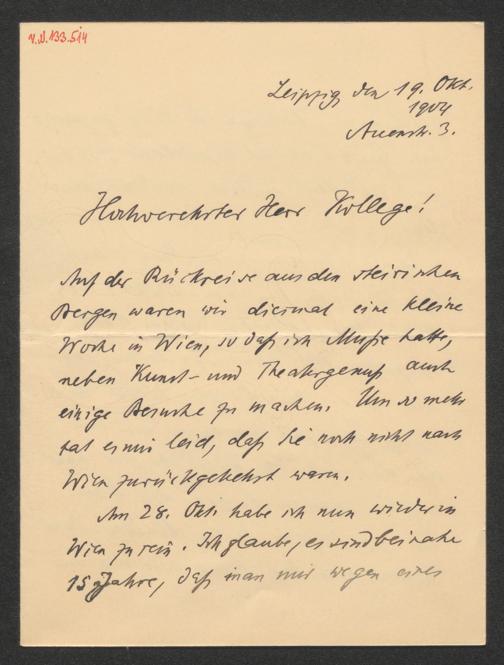 V.N.133.514
Leipzig den 19. Okt.
1904
Auenstr. 3.
Hochverehrter Herr Kollege!
Auf der Rückreise aus den steirischen
Bergen waren wir diesmal eine kleine
Woche in Wien, so daß ich Muße hatte,
neben Kunst- und Theatergenuß auch
einige Besuche zu machen. Um so mehr
tat es mir leid, daß Sie noch nicht nach
Wien zurückgekehrt waren.
Am 28. Okt. habe ich nun wieder in
Wien zu sein. Ich glaube, es sind beinahe
15 Jahre, daß man mir wegen eines